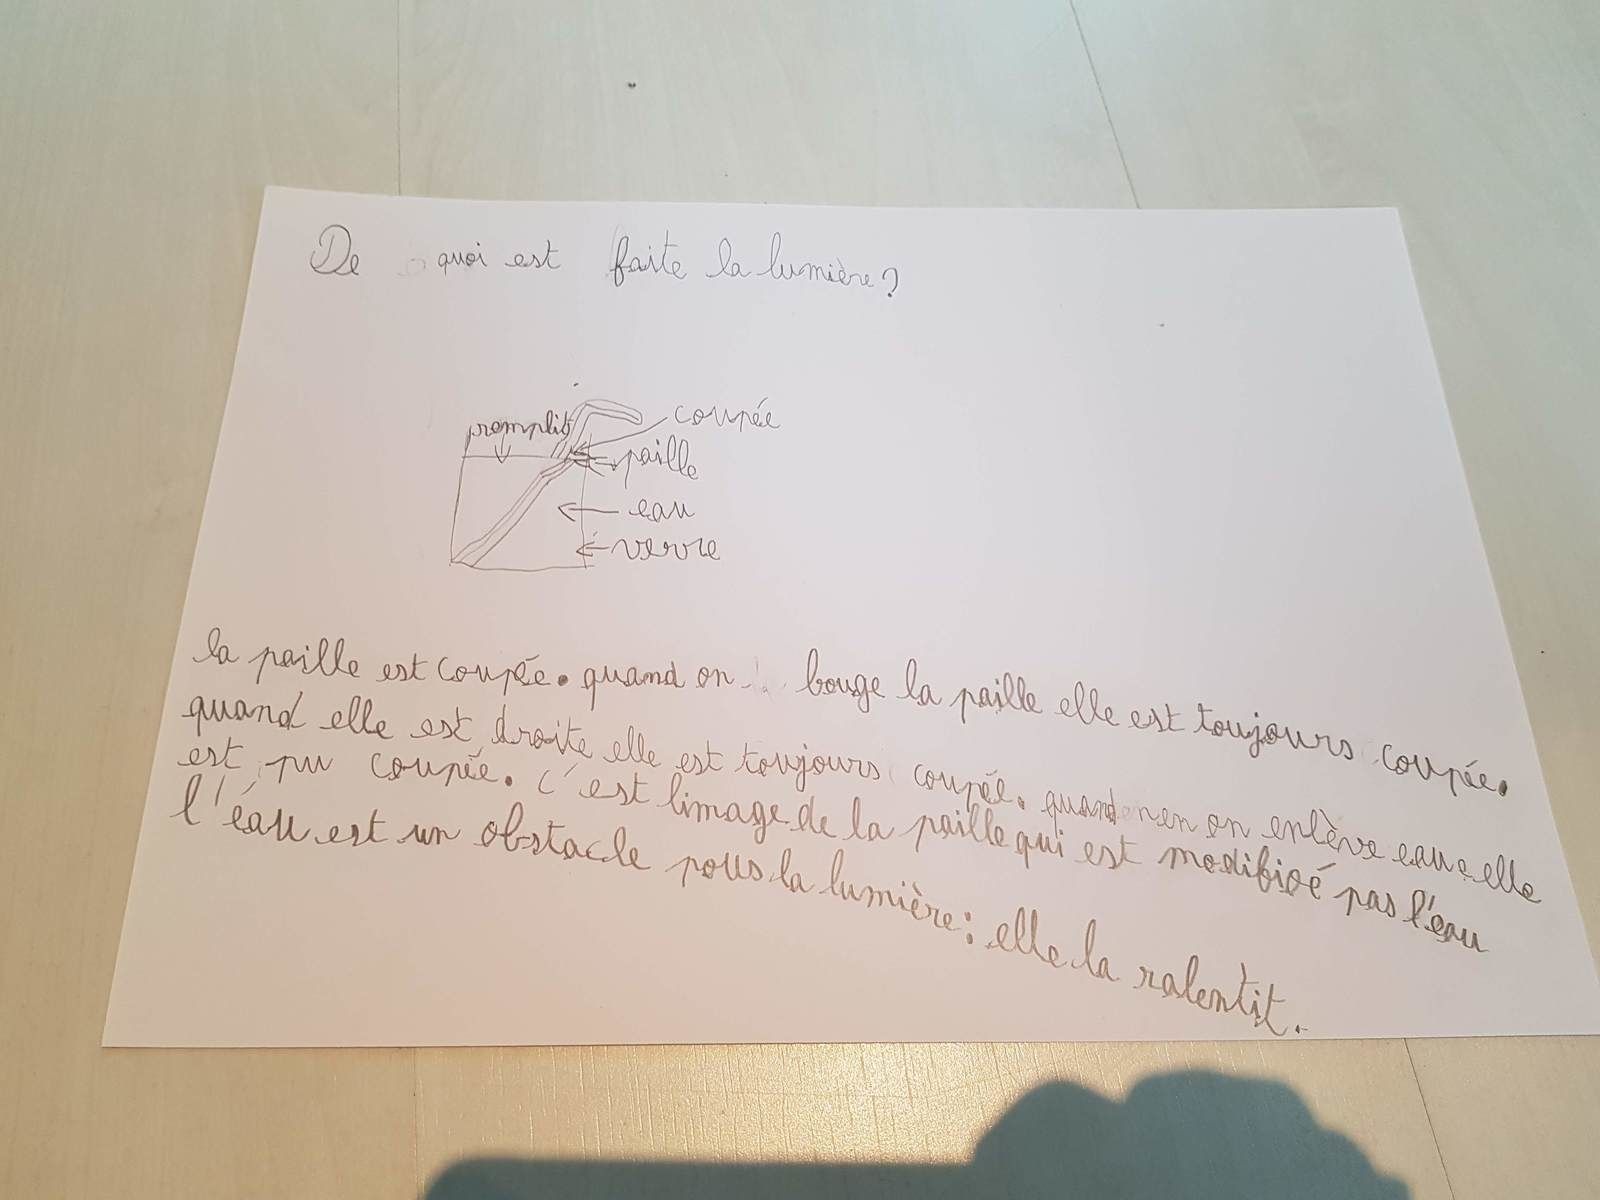 De quoi est faite la lumière?
coupée
remplit
paille
eau
verre
la paille est coupée. quand on bouge la paille elle est toujours coupée.
quand elle est droite elle est toujours coupée. quand on enlève eau elle
est pu coupée. c'est limage de la paille qui est modifié pas l'eau
l'éau est un obstacle pous la lumière: elle la ralentit.